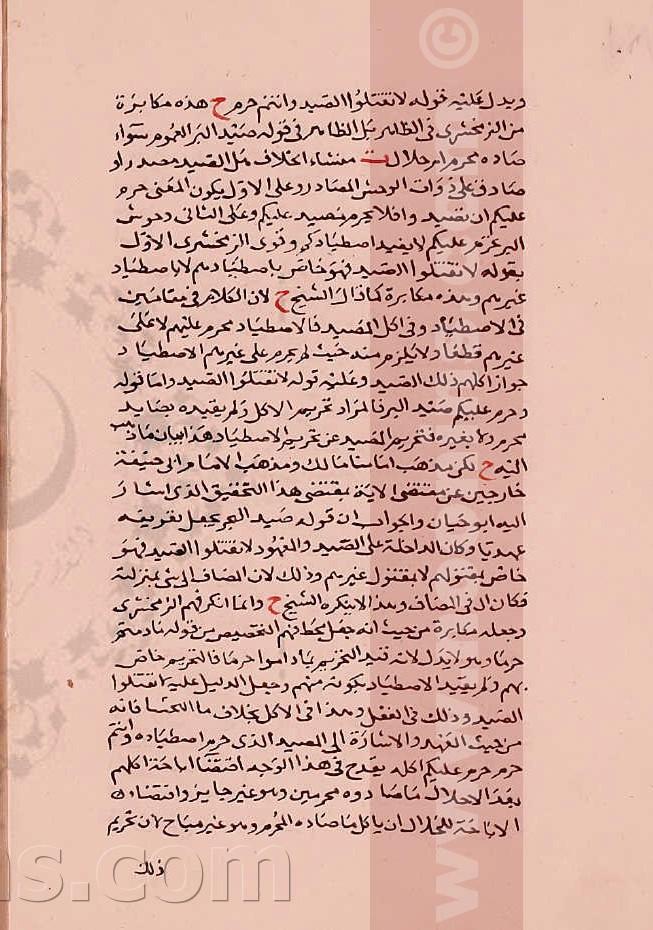 ويدل عليه قوله لا تقتلوا الصيد وانتم حرم ح هذه مكابرة
من الزمخشرى فى الظاهر بل الظاهر فى قوله صيد البر العموم سواء
صاده محرم او حلال ت منشاء الخلاف هل الصيد مصدر او
صادق على ذوات الوحش المصادر وعلى الاول يكون المعنى حرم
عليكم ان تصيدوا فلا يحرم مصيد عليكم وعلى الثانى وحوش
البر محرم عليكم لا بقيد اصطيادكم وقوى الزمخشرى الاول
بقوله لا تقتلوا الصيد فهو خاص باصطيادهم لا باصطياد
غيرهم وهذه مكابرة كما قال الشيخ ح لان الكلام فى مقامين
فى الاصطياد وفى اكل المصيد فالاصطياد محرم عليهم لا على
غيرهم قطعا ولا يلزم منه حيث لم يحرم على غيرهم الاصطياد
جواز اكلهم ذلك الصيد وعليه قوله لا تقتلوا الصيد واما قوله
وحرم عليكم صيد البر فالمراد تحريم الاكل ولم يقيده بصايد
محرم ولا بغيره فتحريم المصيد عن تحريم الاصطياد هذا بيان ما ذهب
اليه ح لكن مذهب امامنا مالك ومذهب الامام ابى حنيفة
خارجين عن مقتضى الاية بمقتضى هذا التحقيق الذى اشار
اليه ابو حيان والجواب ان قوله صيد البحر يجعل تعريفه
عهديا وكان الداخلة على الصيد والمعهود لا تقتلوا الصيد فهو
خاص بمقتولهم لا بمقتول غيرهم وذلك لان المضاف الى شى بمنزلته
فكان ال فى المضاف وهذا لا ينكره الشيخ ح وانما انكر فهم الزمخشرى
وجعله مكابرة من حيث انه جعل محط فهم التخصيص من قوله مادمتم
حرما وهو لا يدل لانه قيد التحريم بما داموا حرما فالتحريم خاص
بهم ولم يقيد الاصطياد بكونه منهم وجعل الدليل عليه لا تقتلوا
الصيد وذلك فى الفعل وهذا فى الاكل بخلاف ما فانه
من حيث العهد والاشارة الى المصيد الذى حرم اصطياده وانتم
حرم حرم عليكم اكله يقدح فى هذا الوجه اقتضاء اباحة اكلهم
بعد الاحلال ما صادوه محرمين وهو غير جايز واقتضاءه
الاباحة للحلال ان ياكل ما صاده المحرم وهو غير مباح لان تحريم
ذلك
ns.com
©